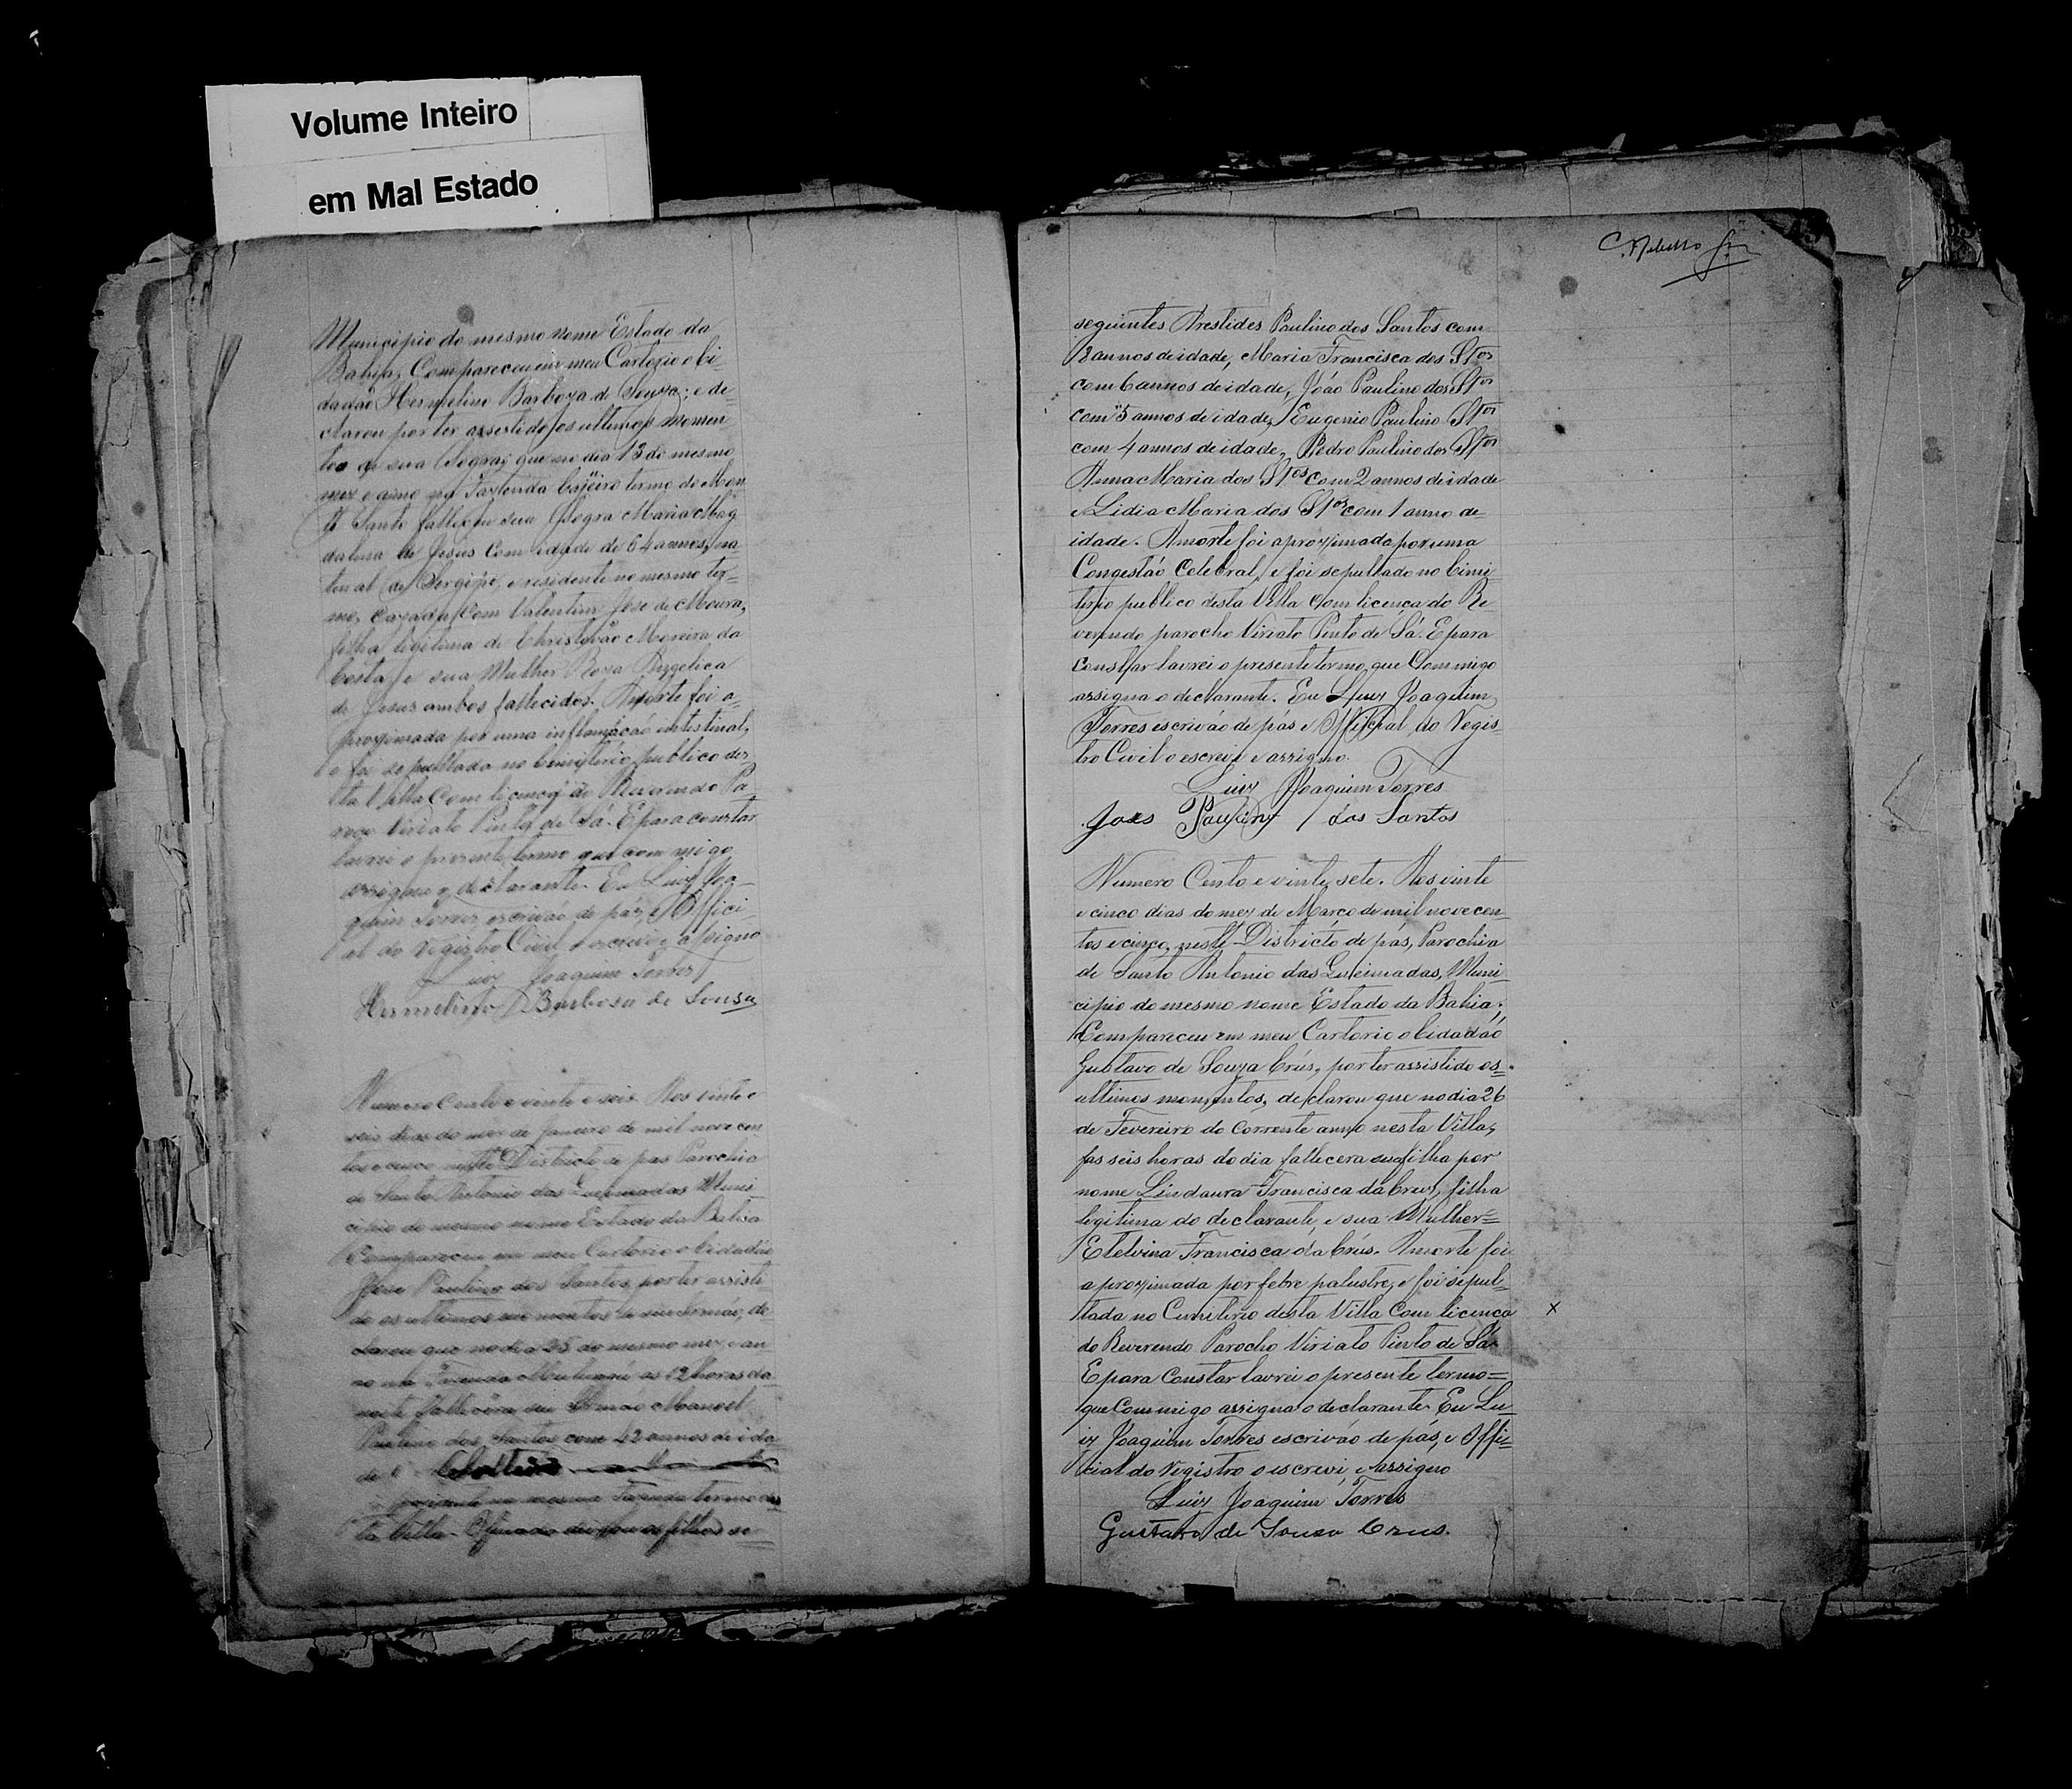 Volume Inteiro
em Mal Estado
Municipio do mesmo nome Estado da
Bahia, Compareceu em meu Cartorio o Ci-
dadão Hermelino Barboza de Souza; e de-
clarou por ter assestido os ultimos momen
tos de sua Sogra; que no dia 13 do mesmo
mez e anno na Fazenda Cajueiro termo de Mon
te Santo falleceu sua Sogra Maria Mag
dalena de Jesus com idade de 64 annos, na-
tural de Sergipe, e residente no mesmo ter-
mo, cazada com Valentim José de Moura,
filha legitima de Christovão Moreira da
Costa e sua Mulher Roza Angelica
de Jesus ambos fallecidos. A morte foi a-
proximada por uma inflamação intestinal,
e foi sepultada no Cemiterio publico des-
ta Villa com licença do Reverendo Pa-
roco Viriato Pinto de Sá. E para constar
lavrei o presente termo que com migo
assigna o declarante. Eu Luiz Joa-
quim Torres escrivão de pás, e Offici-
al do Registro Civil o escrevi e assigno
Luiz Joaquim Torres
Hermelino Barbosa de Sousa
Numero Cento e vinte e seis. Aos vinte e
seis dias do mez de Janeiro de mil nove cen
tos e cinco neste Districto de pas Parochia
de Santo Antonio das Queimadas Muni
cipio do mesmo nome Estado da Bahia
Compareceu em meu Cartorio o Cidadão
José Paulino dos Santos, por ter assisti
do os ultimos momentos de seu Irmão, de-
clarou que no dia 25 do mesmo mez e an
no na Fazenda as 12 horas da
noite fallecera seu Irmão Manoel
Paulino dos Santos com 42 annos de ida
de Solteiro
na mesma Fazenda termo des
ta Villa. O finado deixou os filhos se
C. Rebello Jr.
seguintes Arestides Paulino dos Santos com
12 annos de idade, Maria Francisca dos Stos
com 6 annos de idade, João Paulino dos Stos
com 5 annos de idade, Eugenio Paulino Stos
com 4 annos de idade, Pedro Paulino dos Stos
Anna Maria dos Stos com 2 annos de idade
e Lidia Maria dos Stos com 1 anno de
idade. A morte foi aproximada por uma
Congestão Celebral, e foi sepultado no Cimi-
terio publico desta Villa com licença do Re
verendo parocho Viriato Pinto de Sá. E para
constar lavrei o presente termo, que Commigo
assigna o declarante. Eu Luiz Joaquim
Torres escrivão de pás e Official do Regis-
tro Civil o escrevi e assigno.
Luiz Joaquim Torres
José Paulino dos Santos
Numero Cento e vinte sete. Aos vinte
e cinco dias do mez de Março de mil nove cen-
tos e cinco, neste Districto de pás, Parochia
de Santo Antonio das Queimadas, Muni-
cipio do mesmo nome Estado da Bahia;
Compareceu em meu Cartorio o Cidadão
Gustavo de Souza Crús, por ter assistido os
ultimos momentos, declarou que no dia 26
de Fevereiro do Corrente anno nesta Villa,
fas seis horas do dia fallecera sua filha por
nome Lindaura Francisca da Cruz, filha
legitima do declarante, e sua Mulher=
Etelvina Francisca da Crús. A morte foi
aproximada por febre palustre, e foi sepul-
tada no Cimiterio desta Villa Com licença
x
do Reverendo Parocho Viriato Pinto de Sá
E para Constar lavrei o presente termo=
que Commigo assigna o declarante. Eu Lu
iz Joaquim Torres escrivão de pás, e Offi-
cial do Registro o escrevi, e assigno
Luiz Joaquim Torres
Gustavo de Souza Crus.